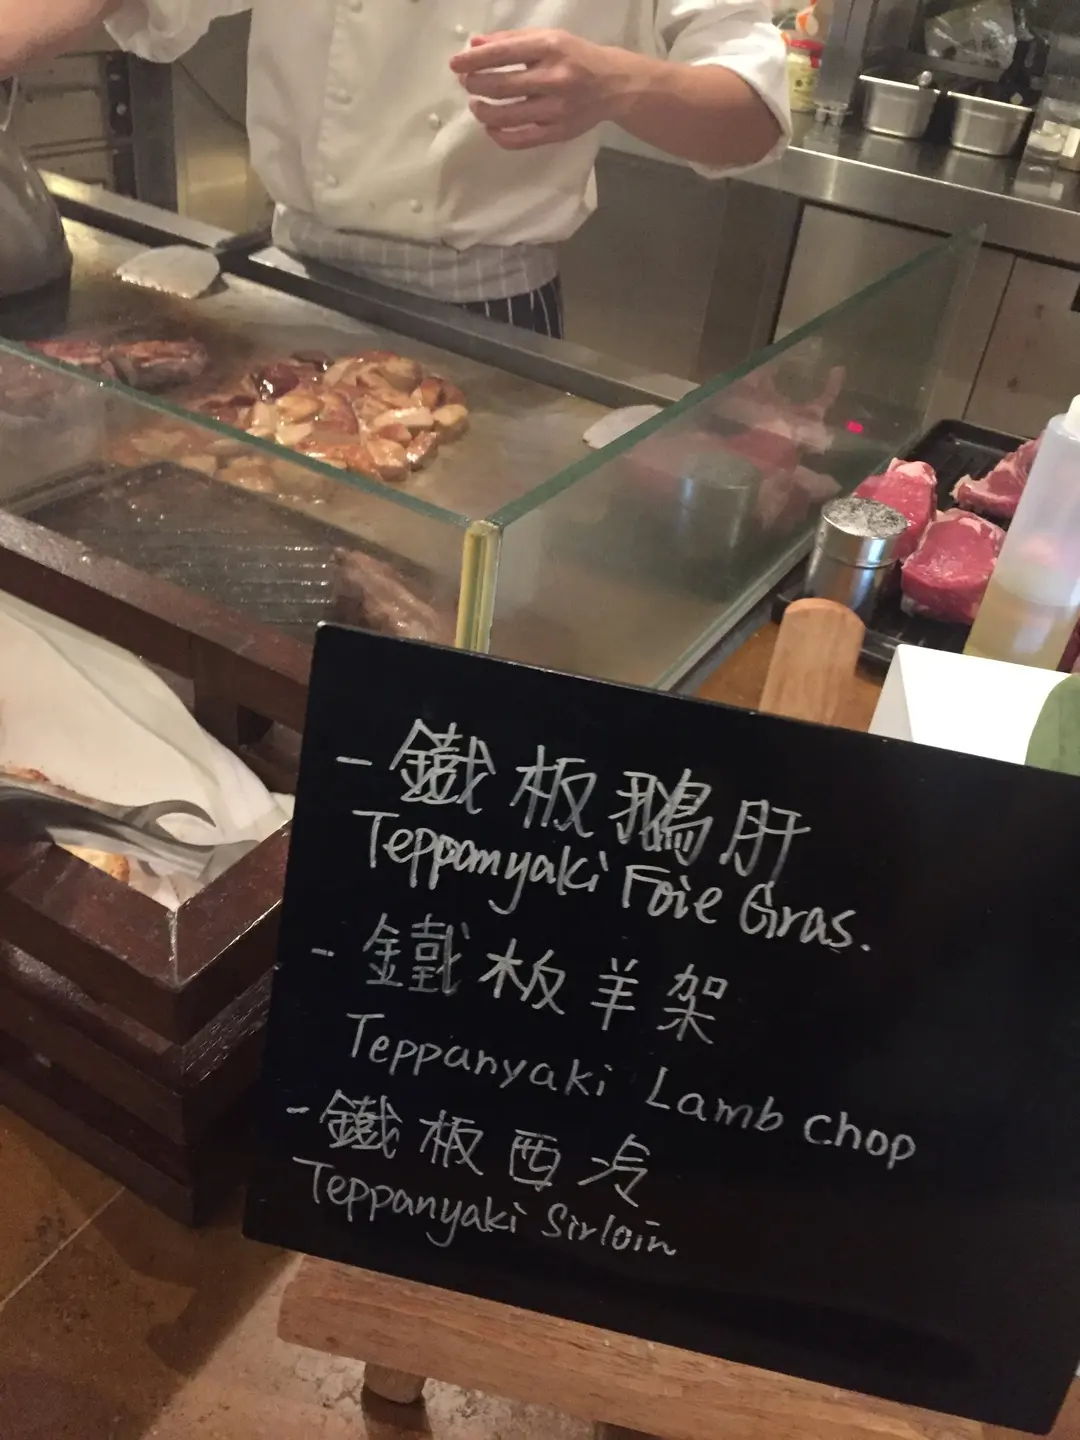 - 鐵板鵝肝
Teppanyaki Foie Gras.
- 鐵板羊架
Teppanyaki Lamb chop
- 鐵板西冷
Teppanyaki Sirloin